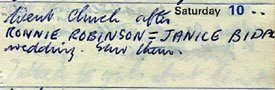 Went Church after Saturday 10
RONNIE ROBINSON = JANICE
wedding. Saw them.